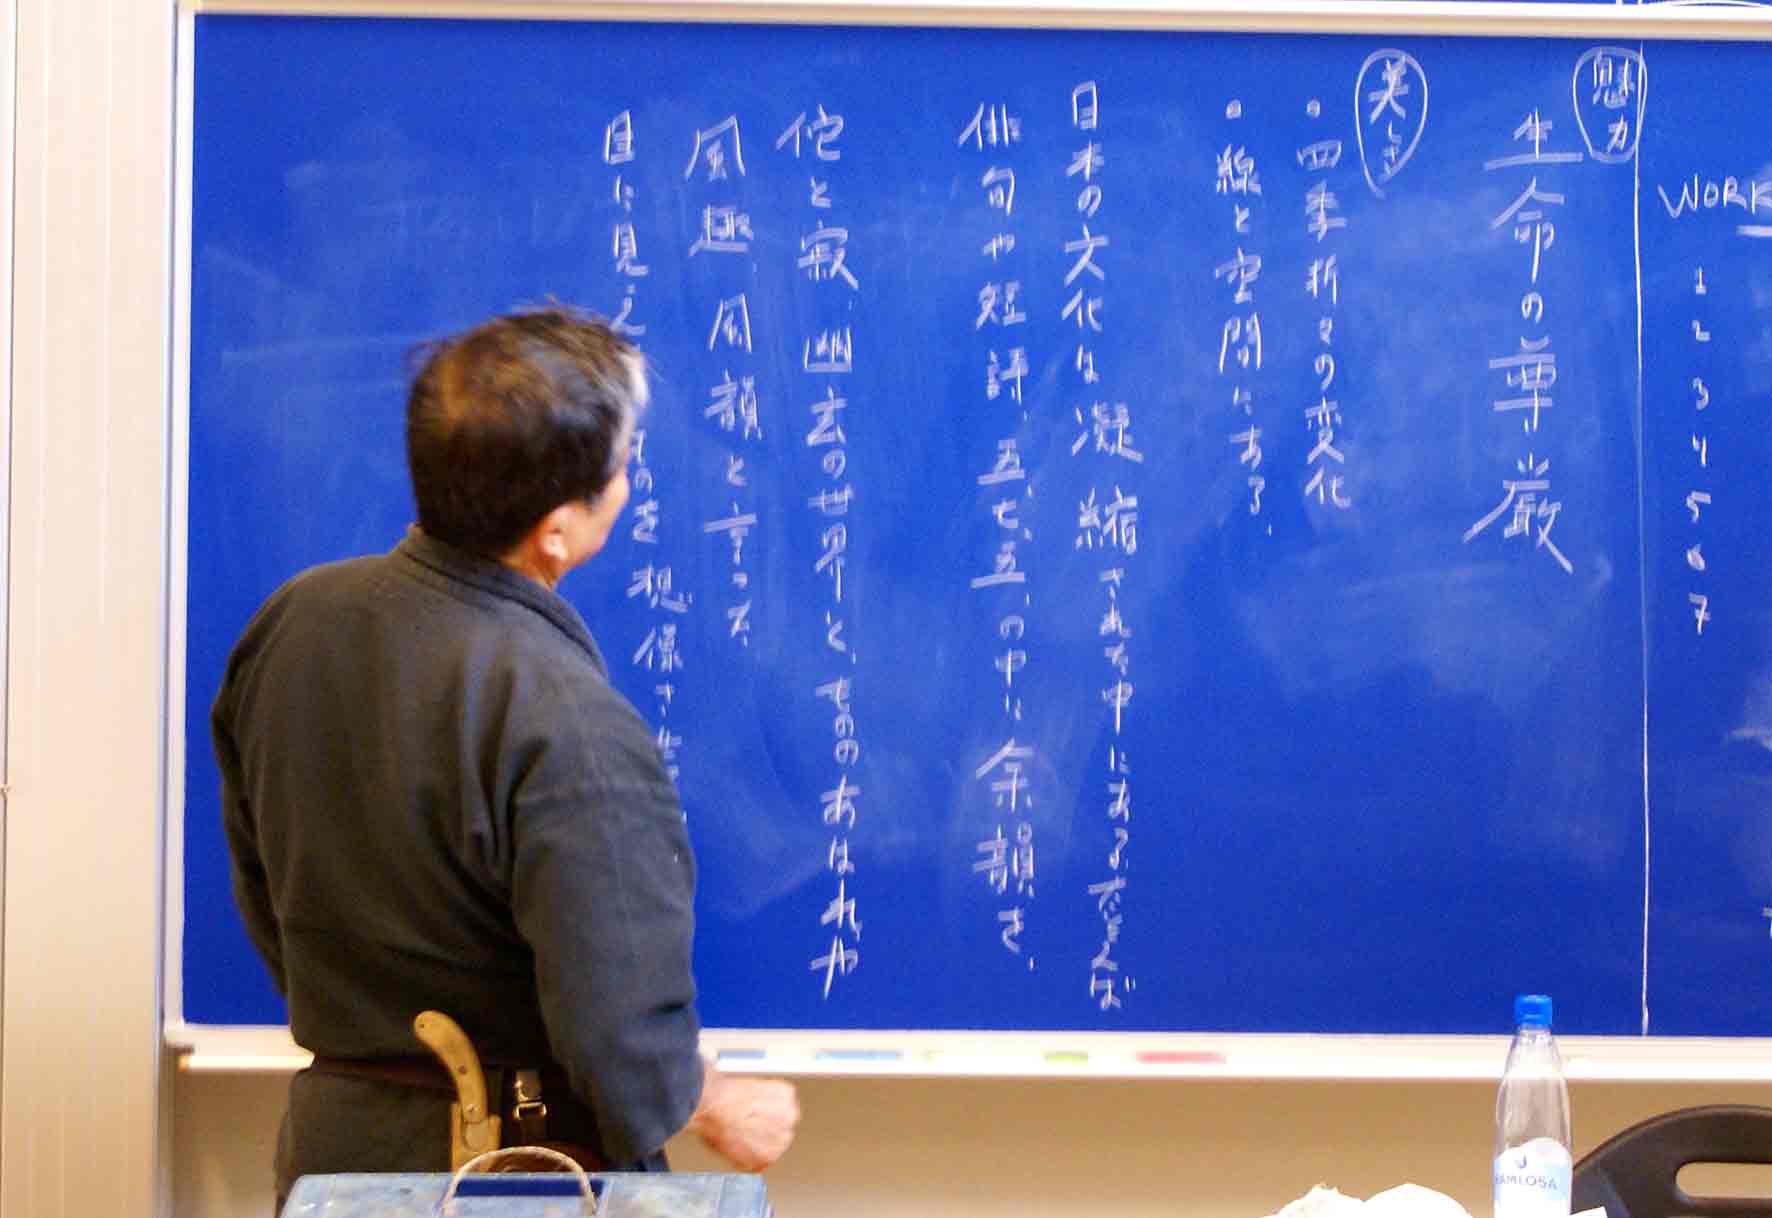 WORK
1
2
3
4
5
6
7
魅力
生命の尊厳
美しさ
・四季折々の変化
・線と空間にある。
日本の文化は凝縮された中にある。たとえば
俳句や短詩、五、七、五、の中に余韻を、
侘と寂、幽玄の世界と、もののあはれや
風趣、風韻と言って、
目に見え のを想像さ
RAMLÖSA